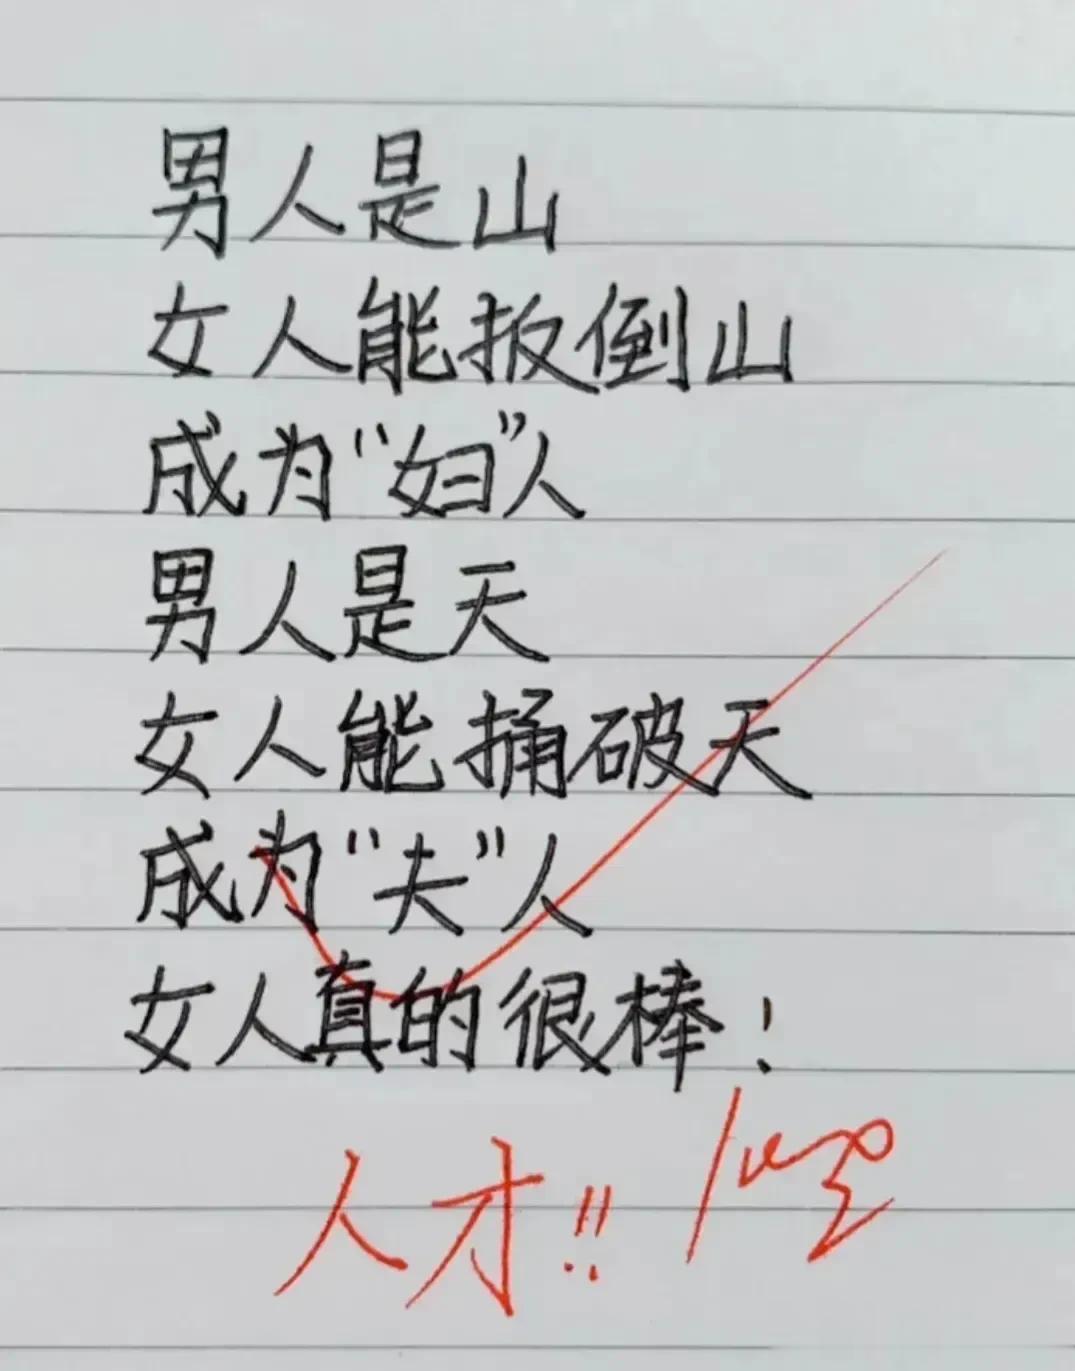 男人是山
女人能扳倒山
成为“妇”人
男人是天
女人能捅破天
成为“夫”人
女人真的很棒！
人才!!